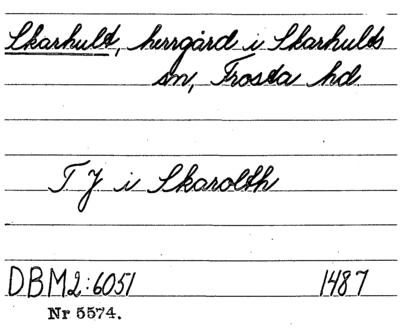 Skarhult, herrgård i Skarhults
sn, Frosta hd
T J i Skarolth
DBM2:6051 1487
Nr 5574.